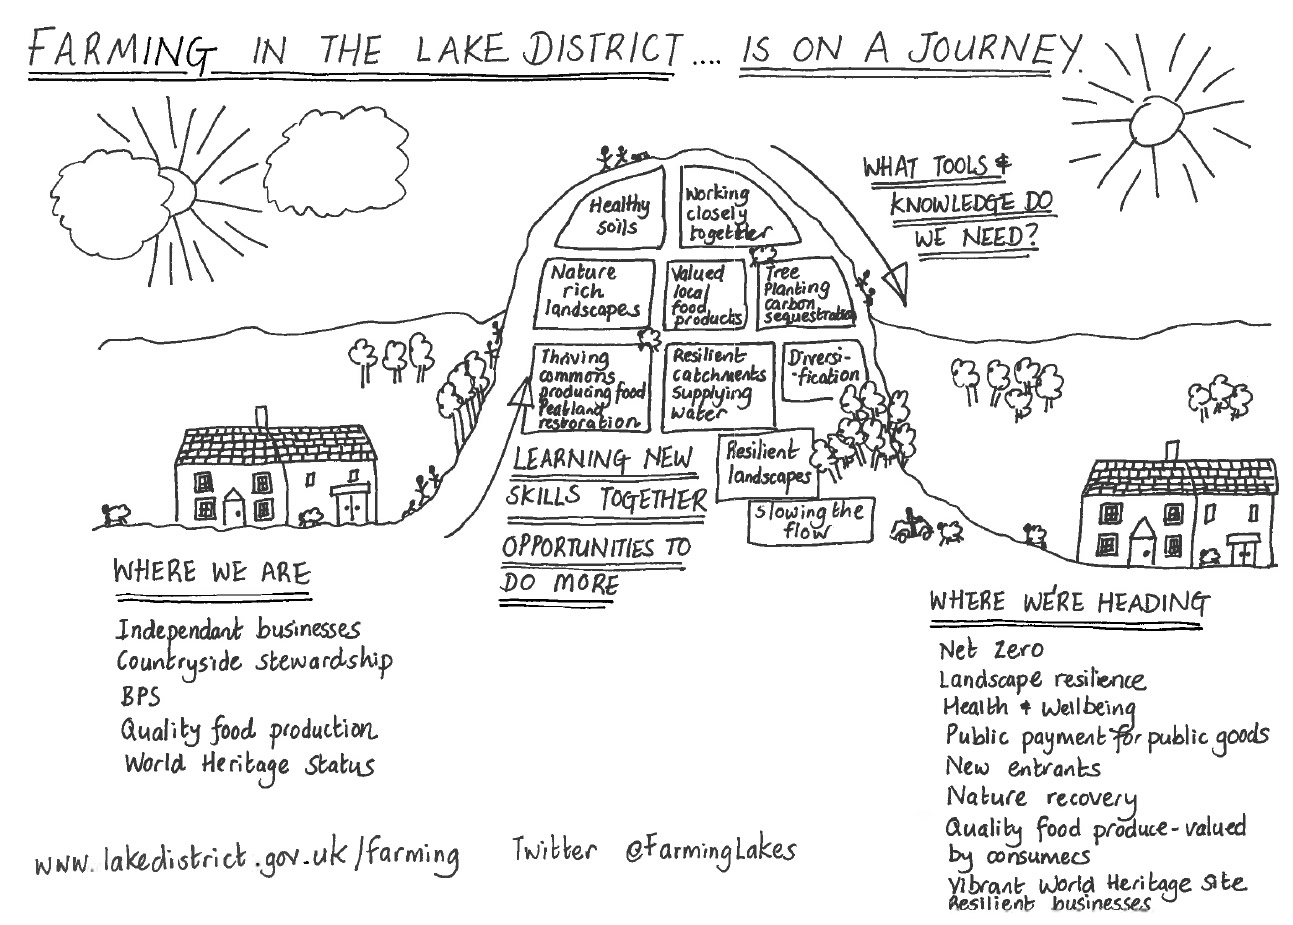 FARMING IN THE LAKE DISTRICT .... IS ON A JOURNEY.
WHAT TOOLS &
KNOWLEDGE DO
WE NEED?
Healthy
soils
Working
closely
together
Nature
rich
landscapes
Valued
local
food
products
Tree
Planting
carbon
sequestration
Thriving
commons
producing food
Peatland
restoration
Resilient
catchments
supplying
water
Diversi-
-fication
Resilient
landscapes
Slowing the
flow
LEARNING NEW
SKILLS TOGETHER
OPPORTUNITIES TO
DO MORE
WHERE WE ARE
Independant businesses
Countryside stewardship
BPS
Quality food production
World Heritage Status
WHERE WE'RE HEADING
Net Zero
Landscape resilience
Health & Wellbeing
Public payment for public goods
New entrants
Nature recovery
Quality food produce-valued
by consumecs
Vibrant World Heritage Site
Resilient businesses
www.lakedistrict.gov.uk/farming
Twitter @FarmingLakes